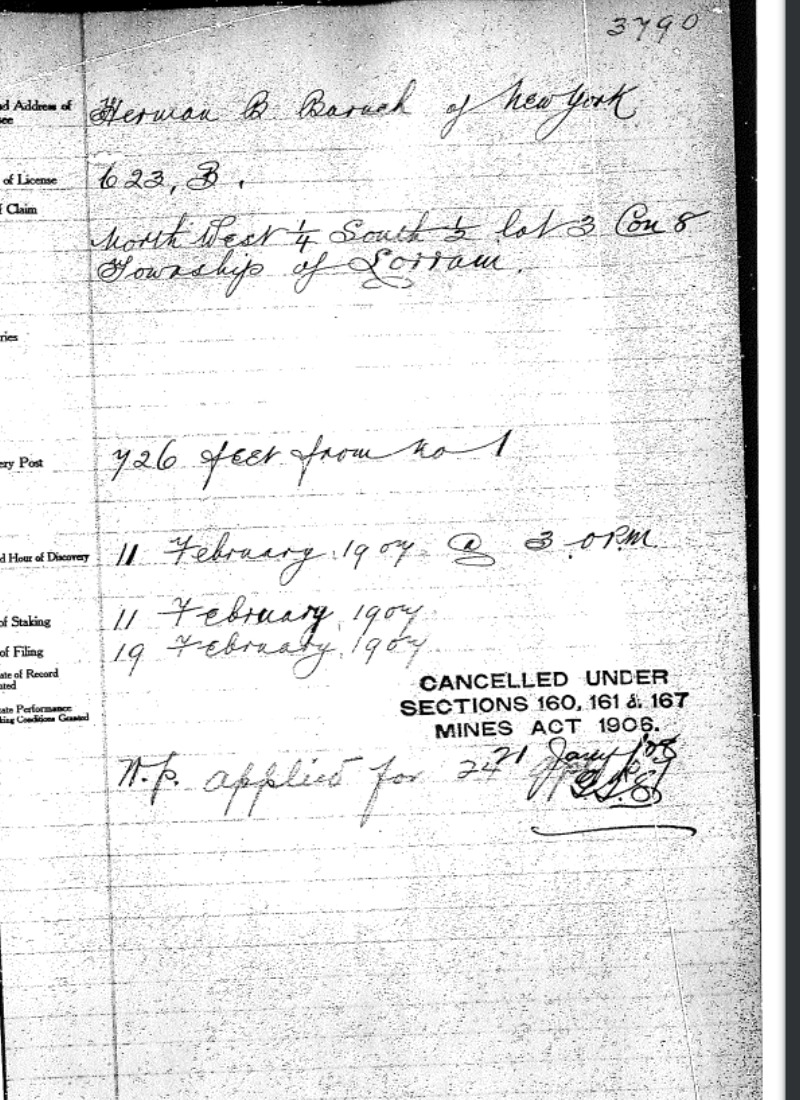 3790
d Address of
ee
Herman B Baruch of New York
of License
623, B.
f Claim
North West 1/4 South 1/2 lot 3 Con 8
Township of Lorrain.
ries
ery Post
726 feet from no 1
d Hour of Discovery
11 February 1907 @ 3.0 P.M.
of Staking
11 February 1907
of Filing
19 February 1907
ate of Record
ted
ate Performance
king Conditions Granted
CANCELLED UNDER
SECTIONS 160, 161 & 167
MINES ACT 1906.
21 Jany '08
W.p. applied for 24